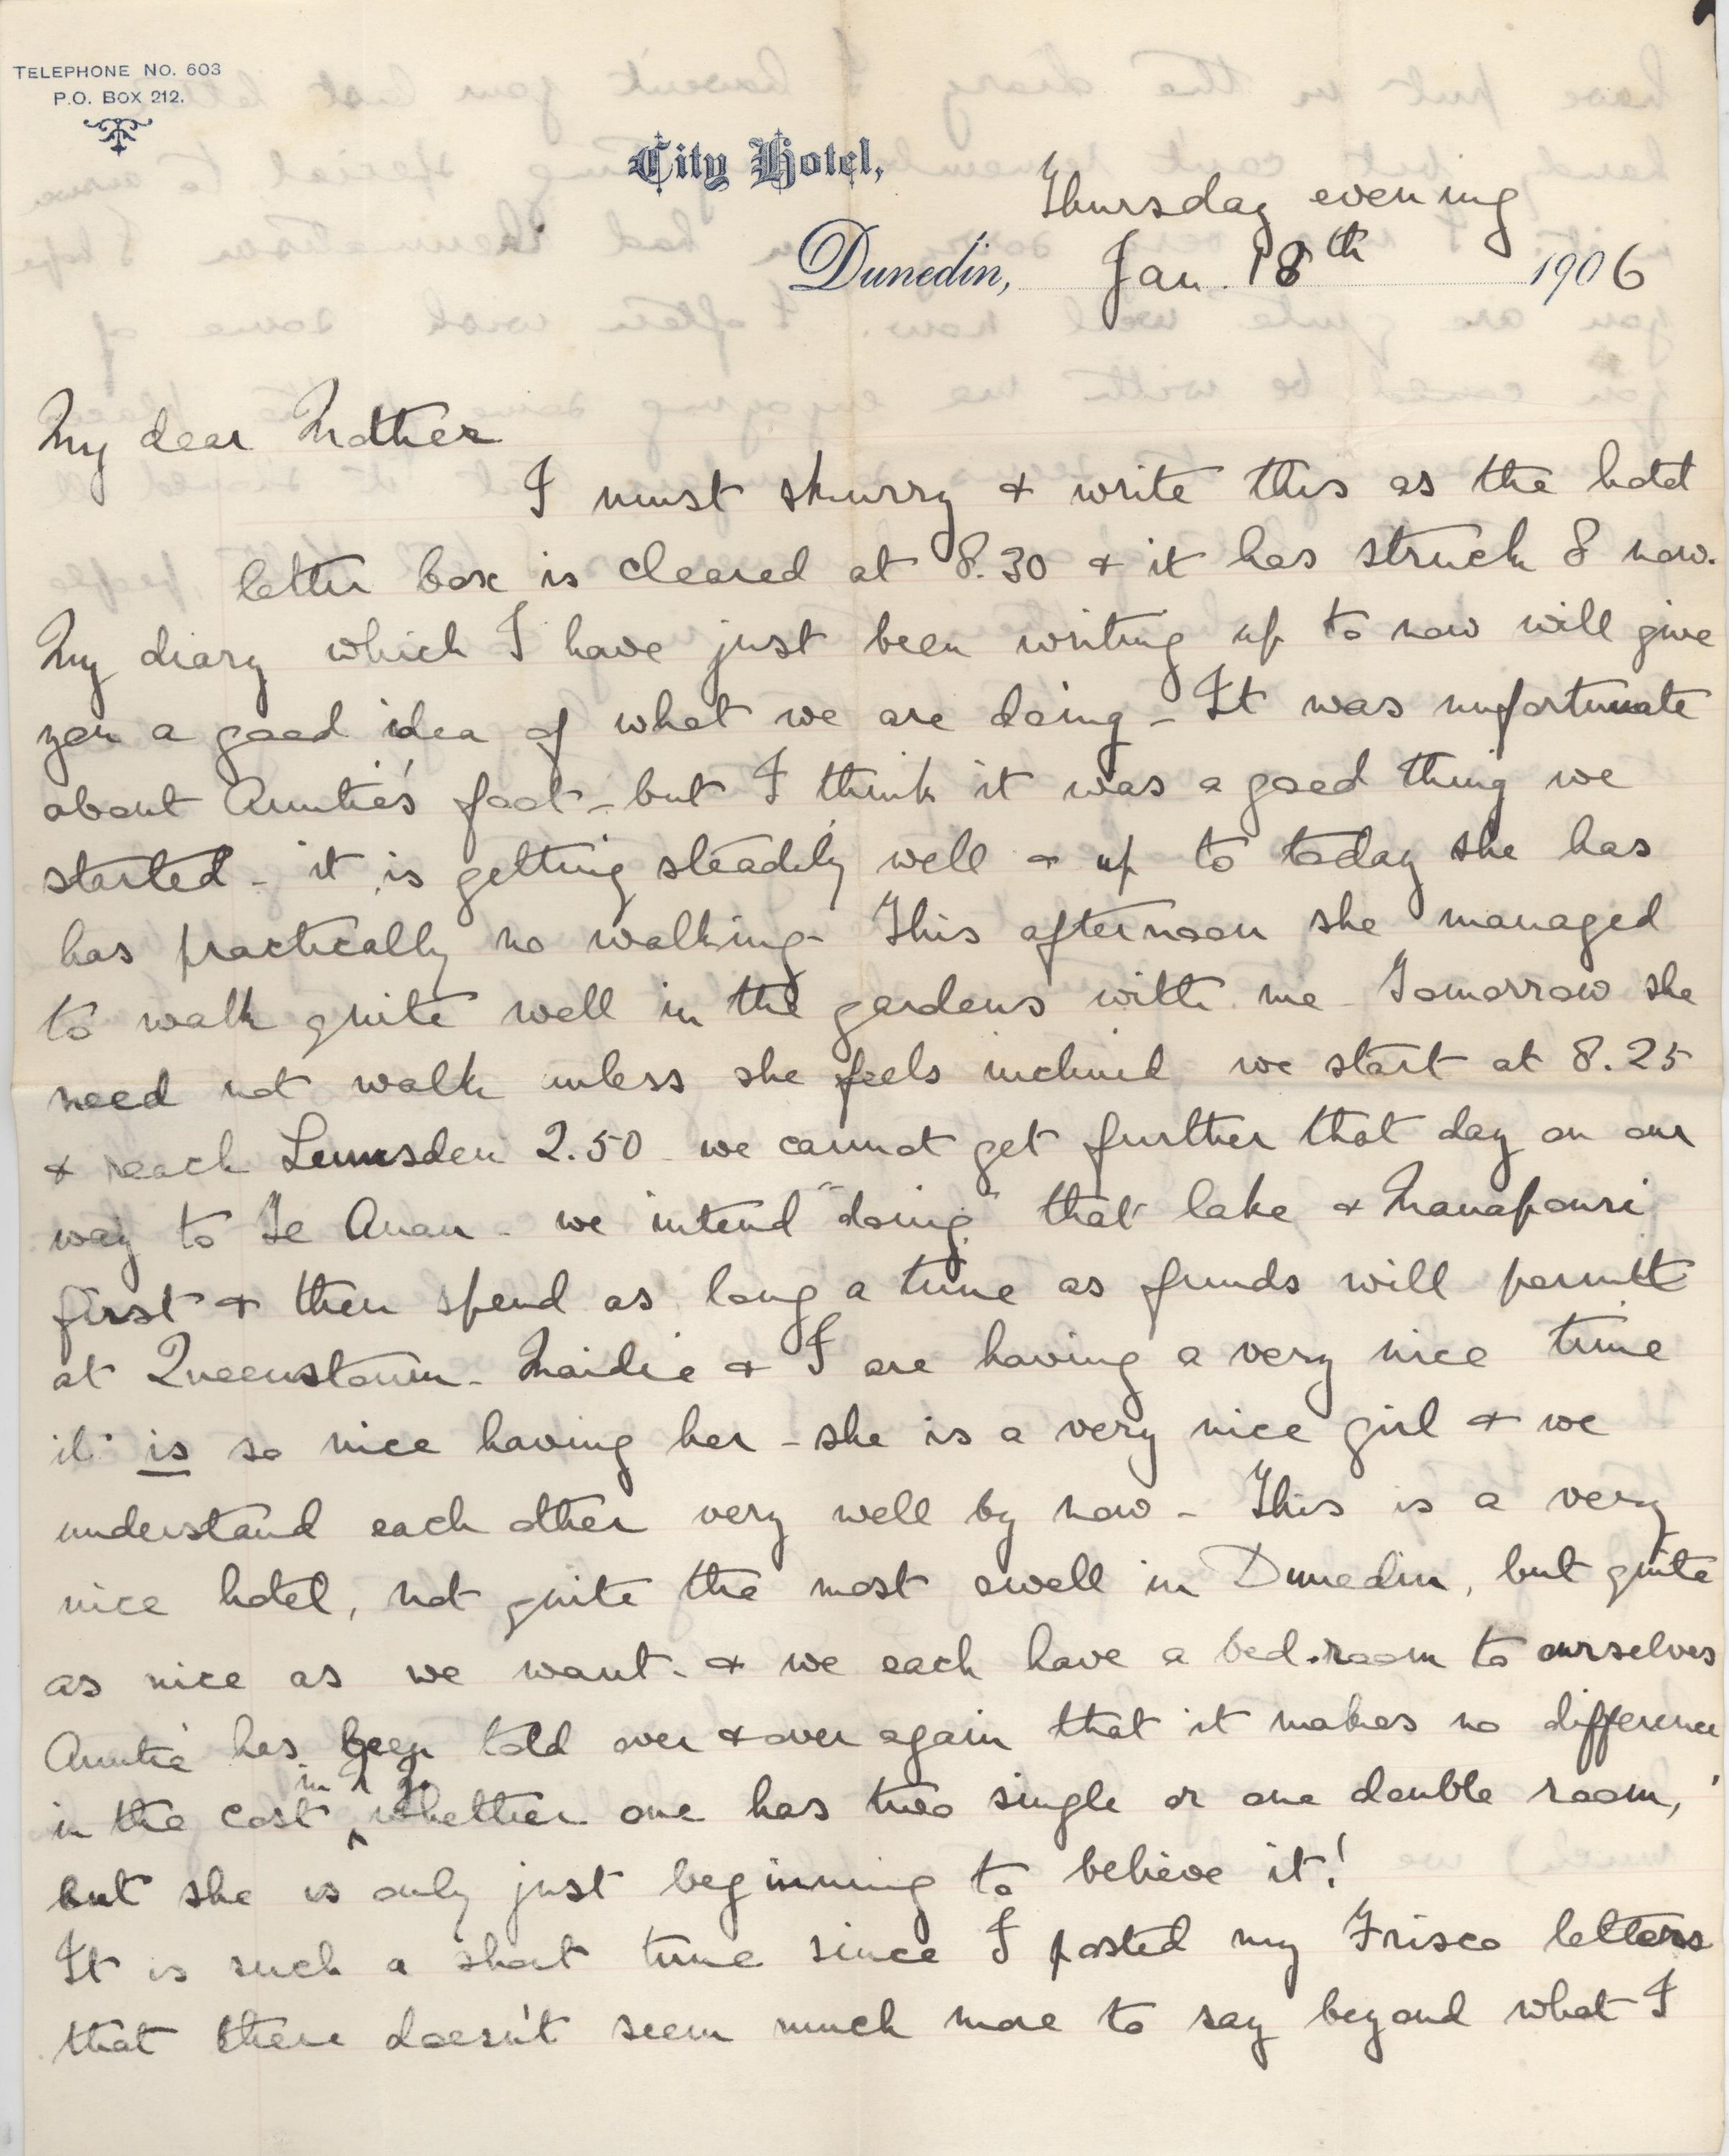 TELEPHONE NO. 603
P.O. BOX 212.
City Hotel,
Thursday evening
Dunedin, Jan. 18th 1906
My dear Mother
I must skurry & write this as the hotel
letter box is cleared at 8.30 & it has struck 8 now.
My diary which I have just been writing up to now will give
you a good idea of what we are doing - It was unfortunate
about Auntie's foot - but I think it was a good thing we
started - it is getting steadily well & up to today she has
has practically no walking - This afternoon she managed
to walk quite well in the gardens with me - Tomorrow she
need not walk unless she feels inclined we start at 8.25
& reach Lumsden 2.50 - we cannot get further that day on our
way to Te Anau - we intend "doing" that lake & Manapouri
first & then spend as long a time as funds will permit
at Queenstown - Maidie & I are having a very nice time
it is so nice having her - she is a very nice girl & we
understand each other very well by now - This is a very
nice hotel, not quite the most swell in Dunedin, but quite
as nice as we want - & we each have a bed-room to ourselves
Auntie has been told over & over again that it makes no difference
in N.Z.
in the cost whether one has two single or one double room,
but she is only just beginning to believe it!
It is such a short time since I posted my Frisco letters
that there doesn't seem much more to say beyond what I